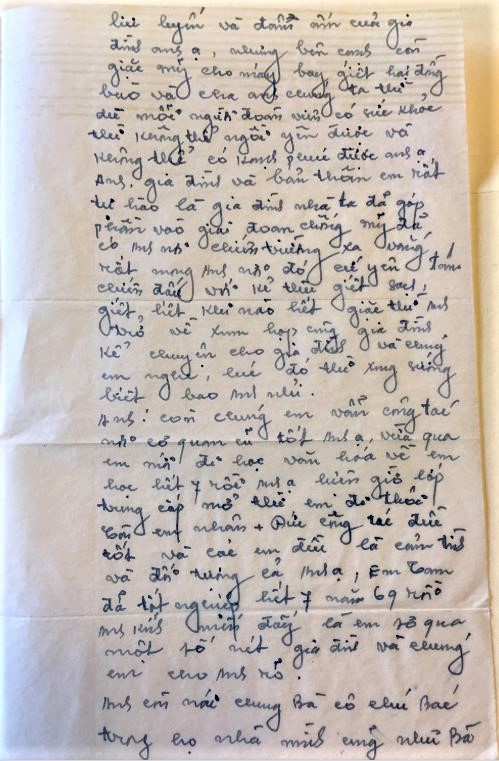 lưu luyến và đầm ấm của gia
đình anh ạ, nhưng bên cạnh còn
giặc mỹ cho máy bay, giết hại đồng
bào và cha anh chúng ta thì
dù mỗi người đoàn viên có sức khỏe
thì không thể ngồi yên được và
không thể có hạnh phúc được anh ạ
Anh, gia đình và bản thân em rất
tự hào là gia đình nhà ta đã góp
phần vào giai đoạn chống mỹ đã
có anh nơi chiến trường xa vắng
rất mong anh nơi đó cứ yên tâm
chiến đấu với kẻ thù giết sạch,
giết hết khi nào hết giặc thì anh
trở về xum họp cùng gia đình
kể chuyện cho gia đình và chúng
em nghe, lúc đó thì xung sướng
biết bao anh nhỉ.
Anh! còn chúng em vẫn công tác
nơi cơ quan cũ tốt anh ạ, vừa qua
em mới đi học văn hóa về em
học hết 7 rồi anh ạ hiện giờ lớp
trung cấp mở thì em đi thôi
Còn em nhâm + Đức công tác đều
tốt và các em đều là cảm tình
và đối tượng cả anh ạ, Em Cam
đã tốt nghiệp hết 7 năm 69 rồi
Anh kính mến đấy là em sơ qua
một số nét gia đình và chúng
em cho anh rõ.
Anh còn nói chung Bà cô chú Bác
trong họ nhà mình cũng như Bà